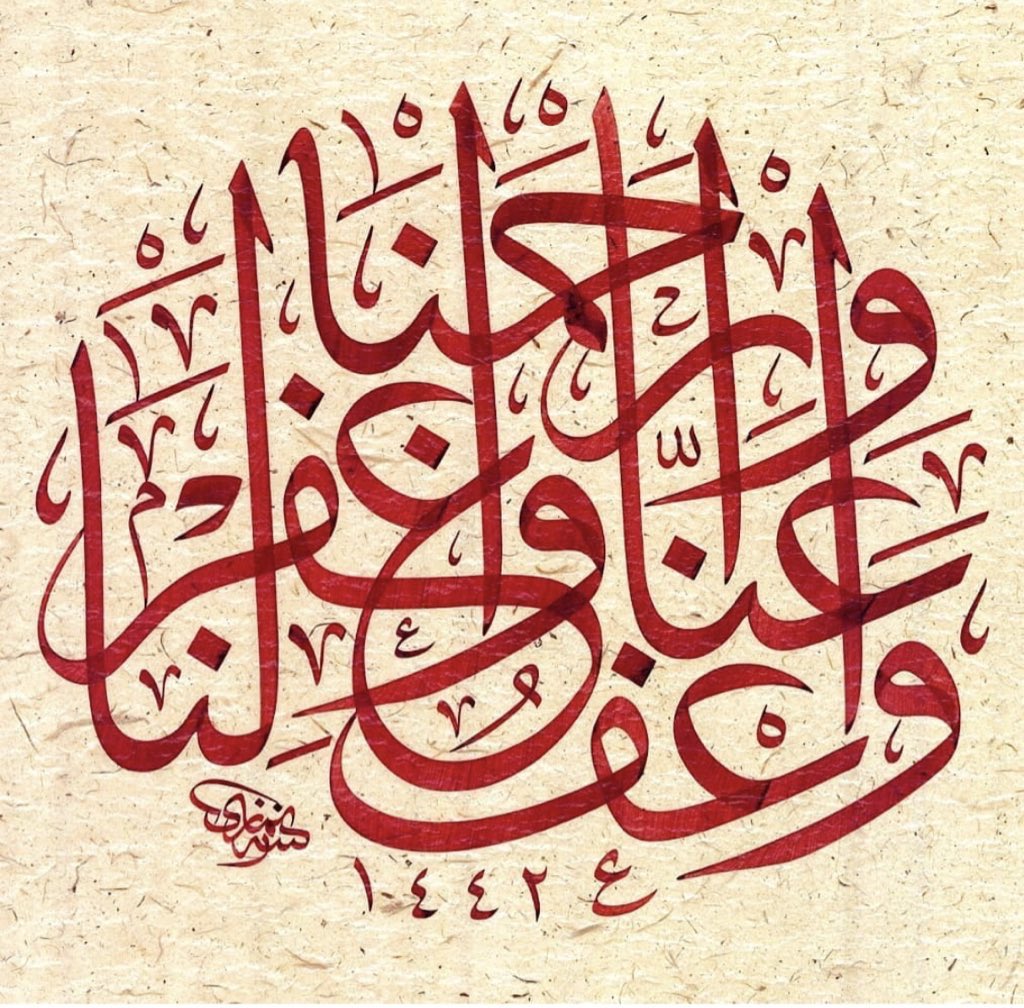 وَاعْفُ عَنَّا وَاغْفِرْ لَنَا وَارْحَمْنَا
ع ١٤٤٢